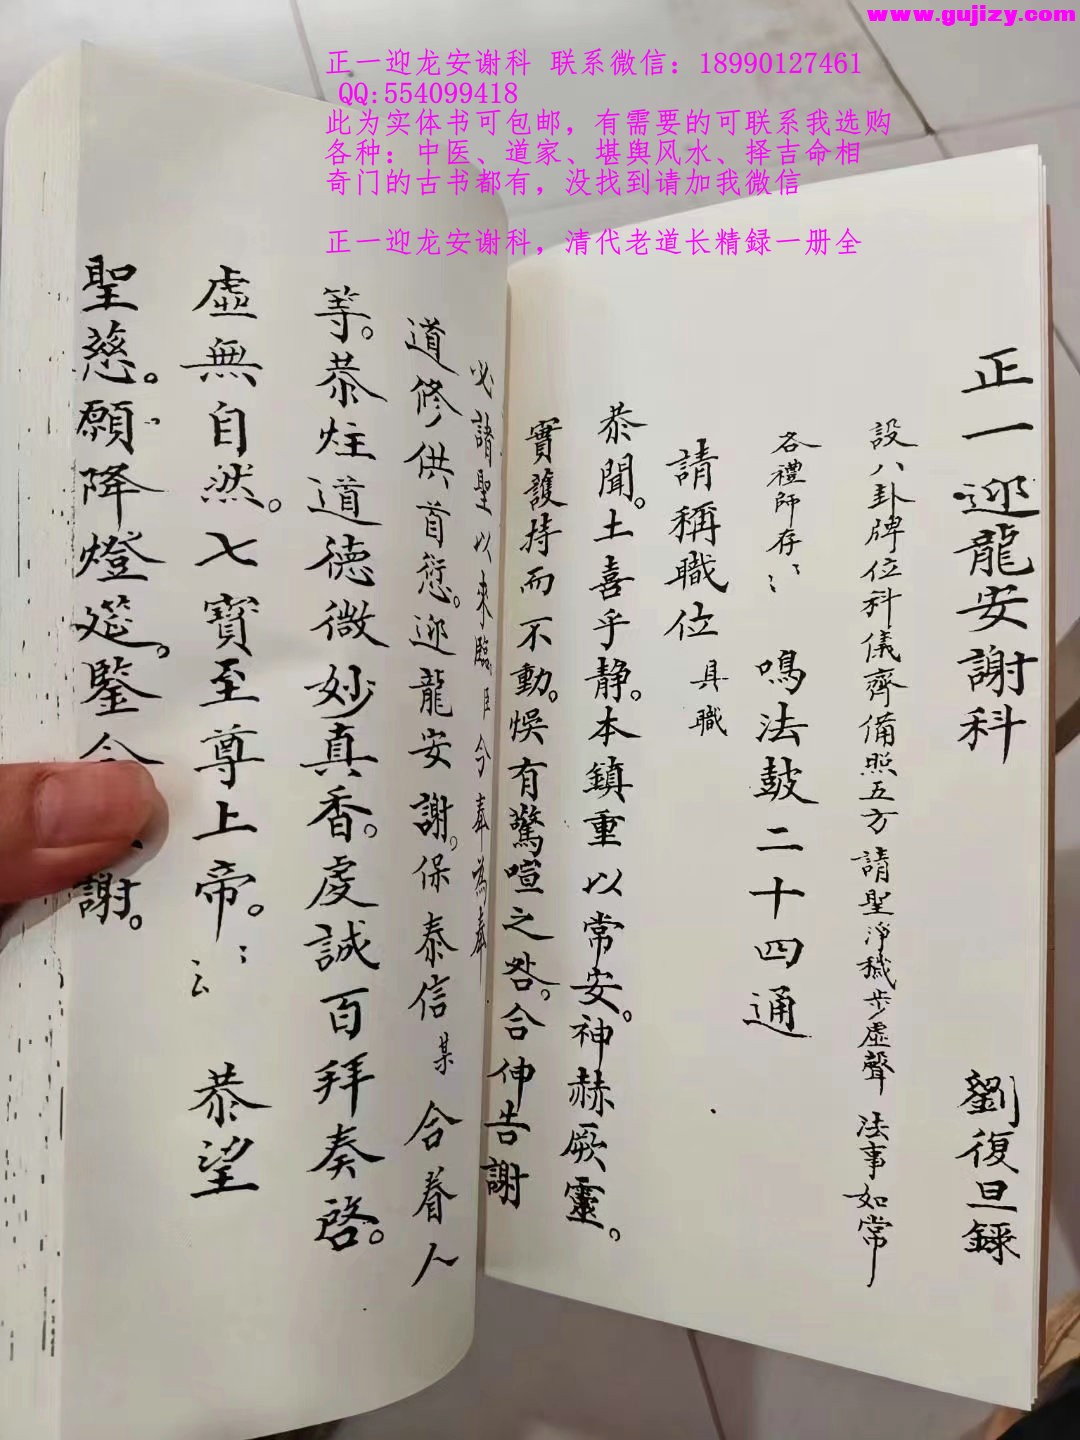 www.gujizy.com
正一迎龙安谢科 联系微信：18990127461
QQ:554099418
此为实体书可包邮，有需要的可联系我选购
各种：中医、道家、堪舆风水、择吉命相
奇门的古书都有，没找到请加我微信
正一迎龙安谢科，清代老道长精録一册全
正一迎龍安謝科 劉復旦録
設八卦牌位科儀齊備照五方 請聖淨穢步虛聲 法事如常
各禮師存 鳴法鼓二十四通
請稱職位 具職
恭聞。土喜乎静。本鎮重以常安。神赫厥靈。
實護持而不動。悮有驚喧之咎。合伸告謝
必諸聖以来臨。臣今奉為奉
道修供首愆。迎龍安謝。保泰信某合眷人
等。恭炷道德微妙真香。虔誠百拜奏啓。
虛無自然。七寶至尊上帝。云 恭望
聖慈。願降燈筵。鑒今謝。